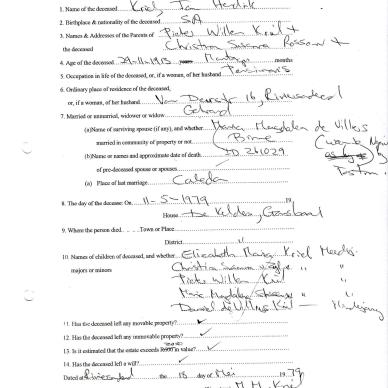 1. Name of the deceased Kriel, Jan Hendrik
2. Birthplace & nationality of the deceased SA
3. Names & Addresses of the Parents of Pieter Willem Kriel +
the deceased Christina Susanna Rossouw +
4. Age of the deceased 29-11-1915 months
5. Occupation in life of the deceased, or, if a woman, of her husband
6. Ordinary place of residence of the deceased,
or, if a woman, of her husband 16, Riviersonderend
7. Married or unmarried, widower or widow Getroud
(a) Name of surviving spouse (if any), and whether Magdalena de Villiers
married in community of property or not. Binne
(b) Name or names and approximate date of death ID 261029
of pre-deceased spouse or spouses
(a) Place of last marriage Caledon
8. The day of the decease: On 11-5-1979 19
House De Kelders, Gansbaai
9. Where the person died. Town or Place
District "
10. Names of children of deceased, and whether Elizabeth Maria Kriel
majors or minors Christina Susanna "
Pieter Willem Kriel "
Magdalena "
Daniel de Villiers Kriel
11. Has the deceased left any movable property? ✓
12. Has the deceased left any immovable property? ✓
13. Is it estimated that the estate exceeds in value? ✓
14. Has the deceased left a will? ✓
Dated at the 18 day of Mei 1979
M.M. Kriel